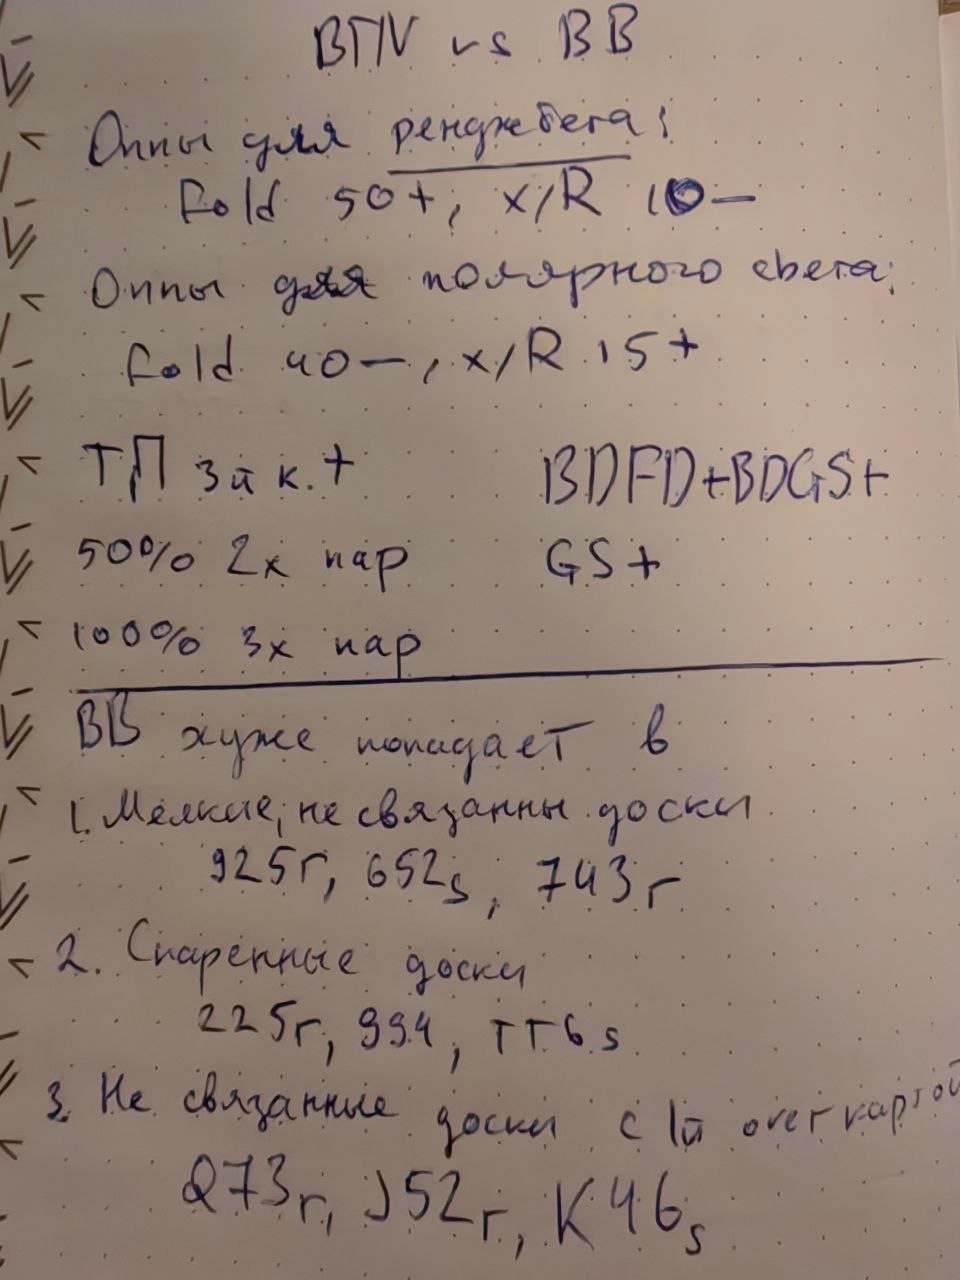 BTN vs BB
Оппы для ренджбета:
Fold 50+, x/R 10-
Оппы для полярного сбета:
Fold 40-, x/R 15+
ТП 3й к.+ BDFD+BDGS+
50% 2х пар GS+
100% 3х пар
BB хуже попадает в
1. Мелкие, не связанны доски
925r, 652s, 743r
2. Спаренные доски
225r, 994, TT6s
3. Не связанные доски с 1й over картой
Q73r, J52r, K46s